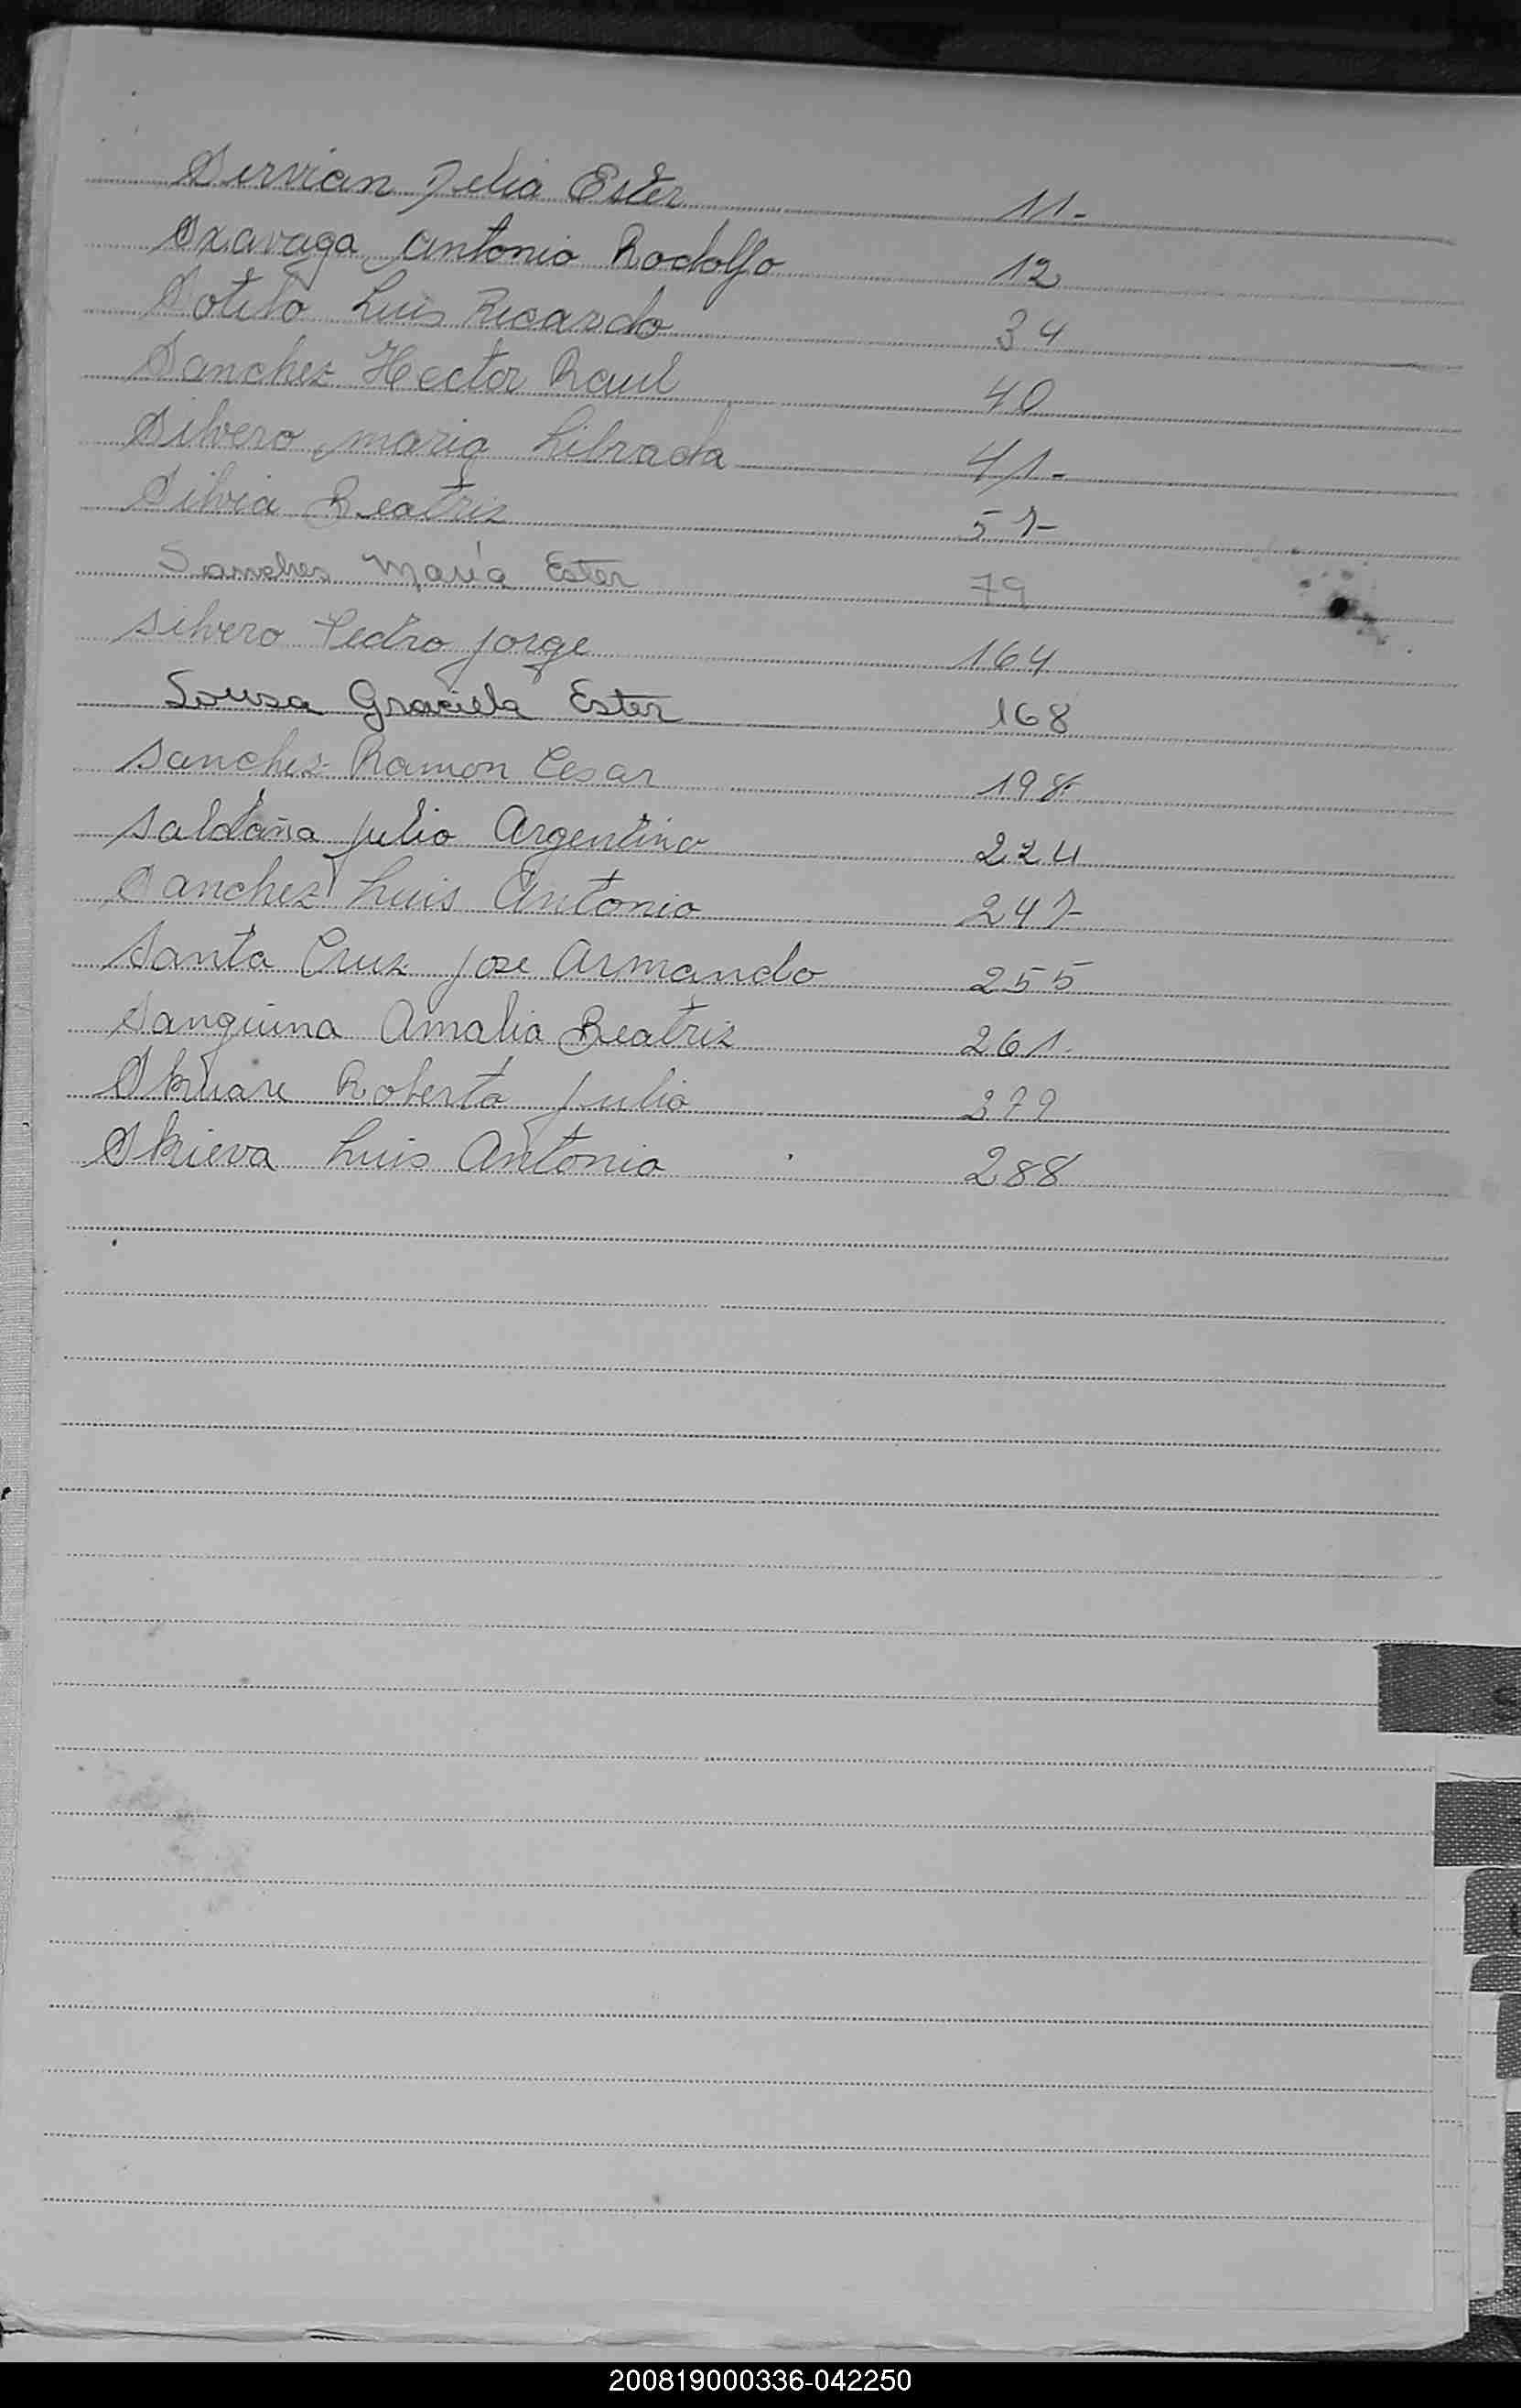 Servian Delia Ester 11-
Sxavaga Antonio Rodolfo 12
Sotelo Luis Ricardo 34
Sanchez Hector Raul 40
Silvero Maria Librada 41-
Silvia Beatriz 57-
Sanchez María Ester 79
Silvero Pedro Jorge 164
Sousa Graciela Ester 168
Sanchez Ramon Cesar 198
Saldaña Julio Argentino 224
Sanchez Luis Antonio 247-
Santa Cruz Jose Armando 255
Sanguina Amalia Beatriz 261
Roberto Julio 279
Skieva Luis Antonio 288
S
200819000336-042250